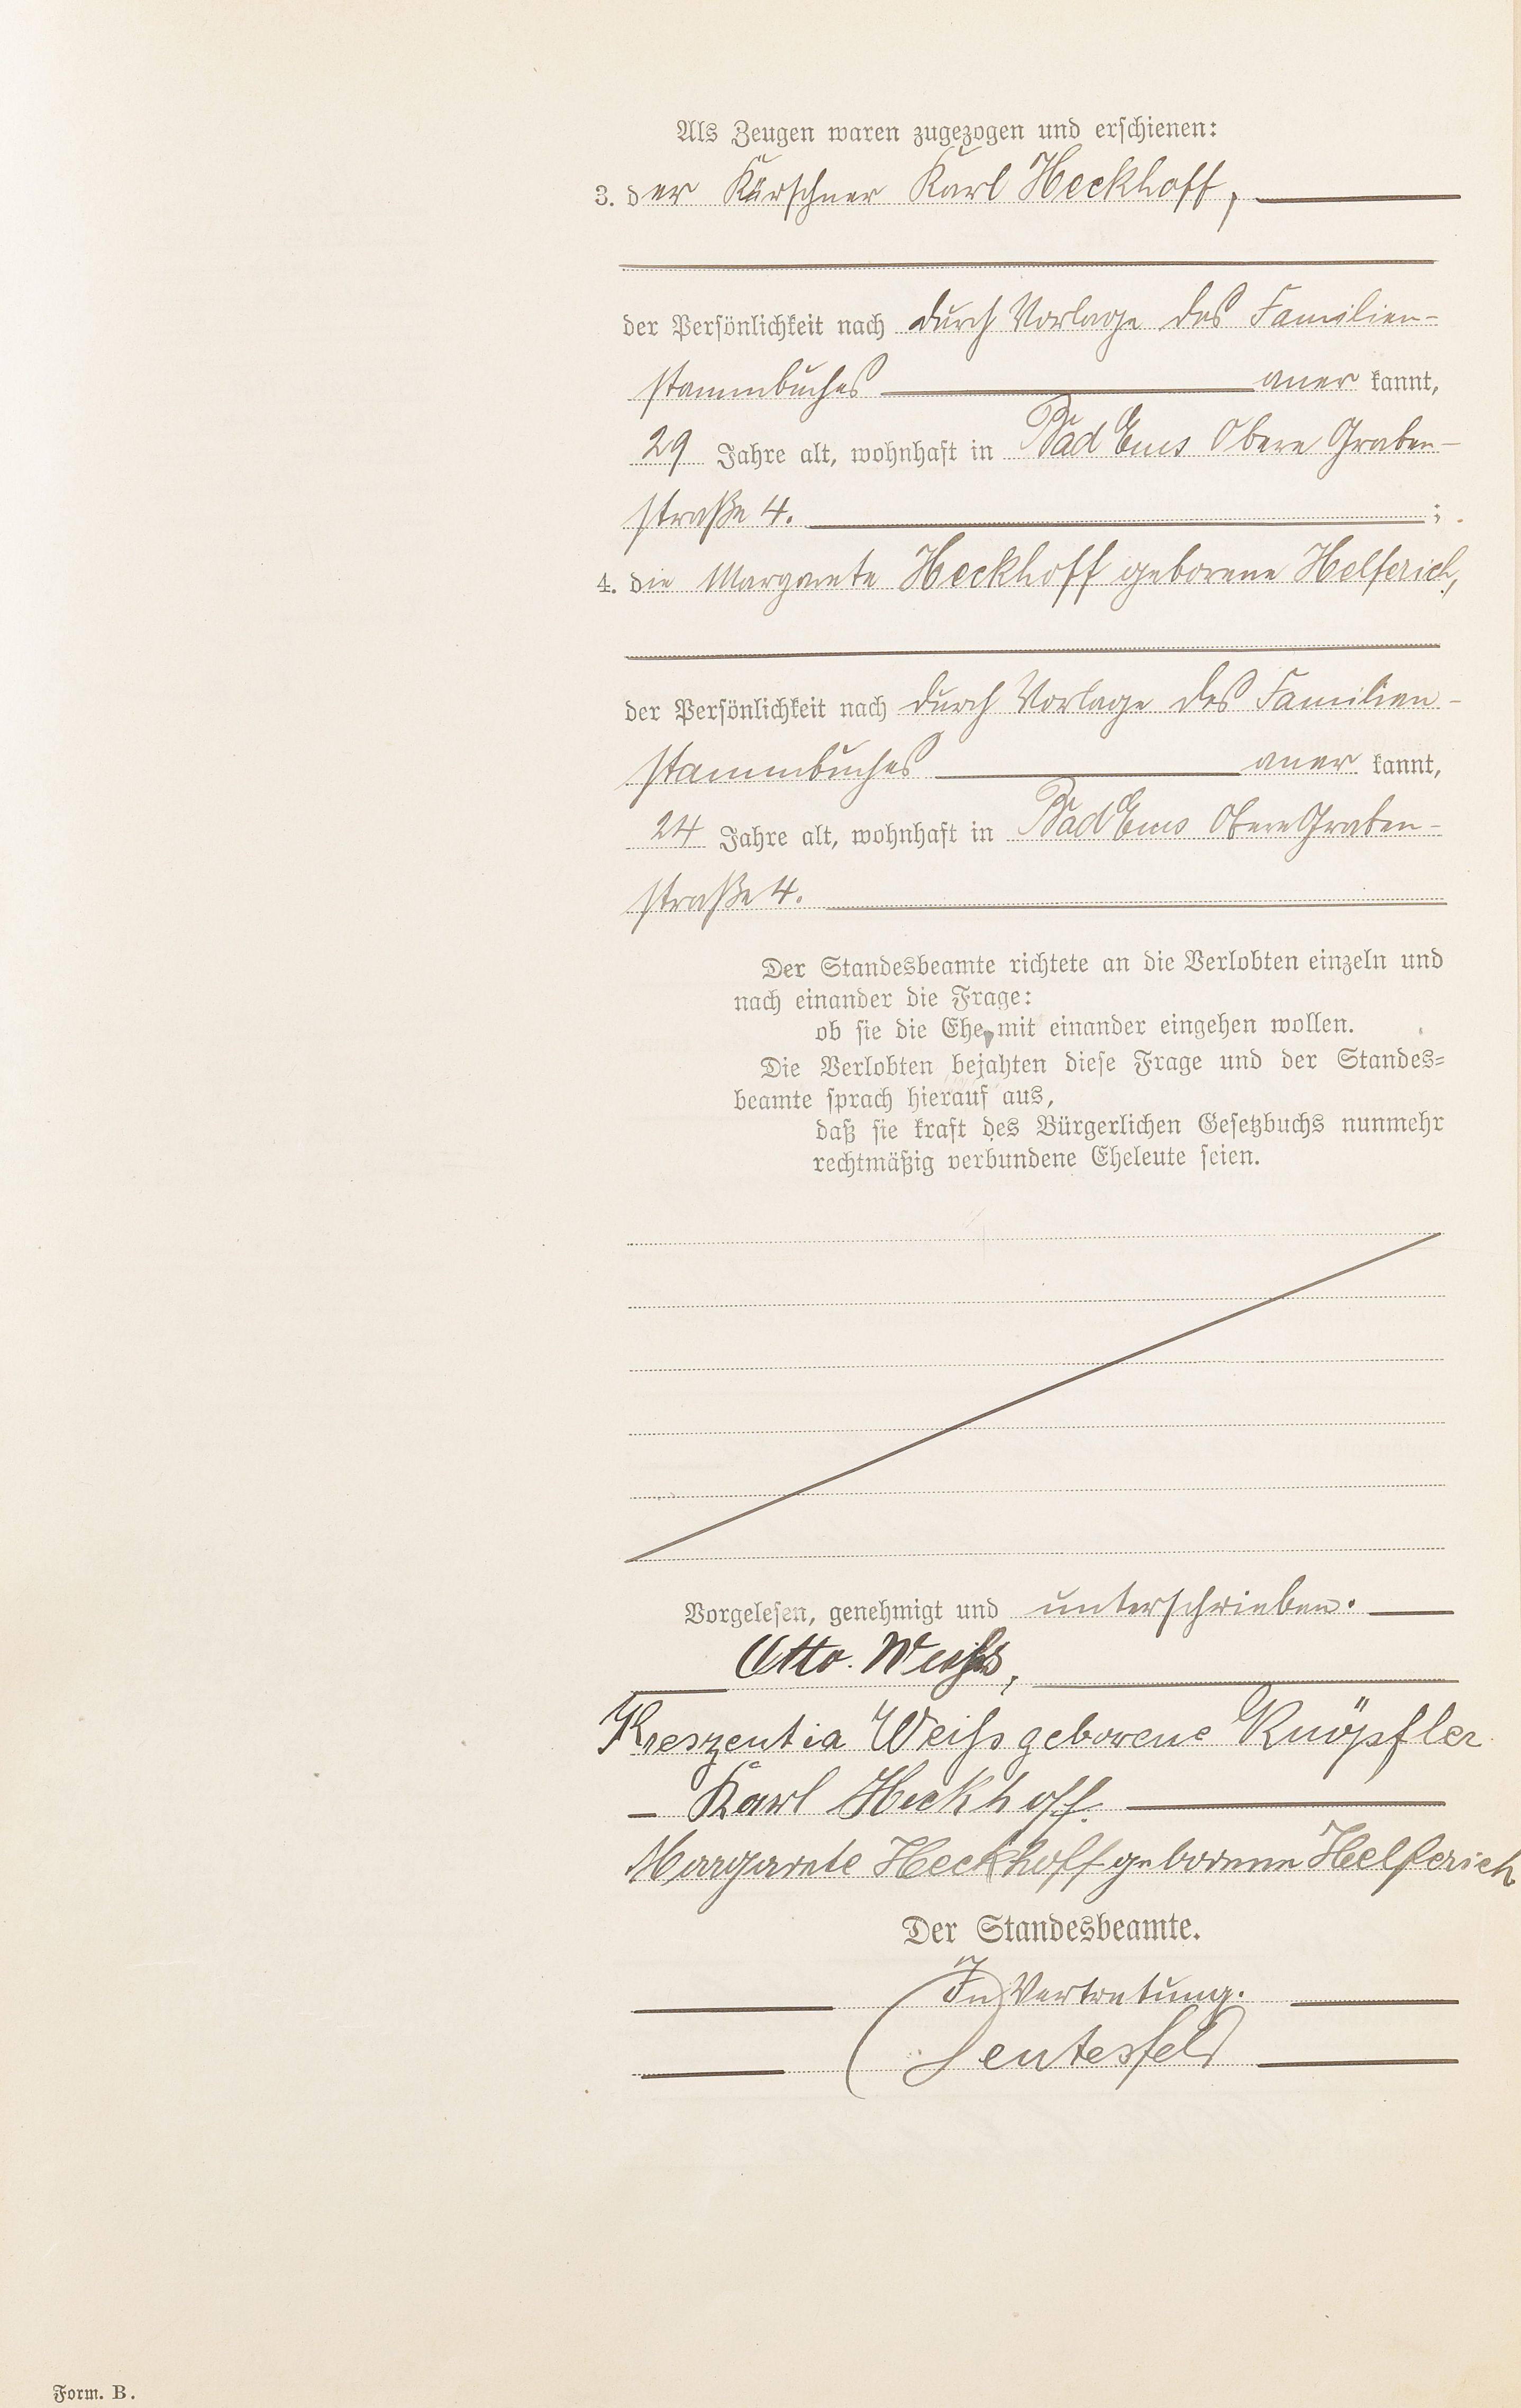 Als Zeugen waren zugezogen und erschienen:
3. der Kürschner Karl Heckhoff,
der Persönlichkeit nach durch Vorlage des Familien-
stammbuches aner kannt,
29 Jahre alt, wohnhaft in Bad Ems Obere Graben-
straße 4. ;
4. die Margarete Heckhoff geborene Helferich,
der Persönlichkeit nach durch Vorlage des Familien-
stammbuches aner kannt,
24 Jahre alt, wohnhaft in Bad Ems Obere Graben-
straße 4.
Der Standesbeamte richtete an die Verlobten einzeln und
nach einander die Frage:
ob sie die Ehe mit einander eingehen wollen.
Die Verlobten bejahten diese Frage und der Standes-
beamte sprach hierauf aus,
daß sie kraft des Bürgerlichen Gesetzbuchs nunmehr
rechtmäßig verbundene Eheleute seien.
Vorgelesen, genehmigt und unterschrieben.
Otto Weiss,
Kreszentia Weiss geborene Knöpfler
Karl Heckhoff.
Margarete Heckhoff geborene Helferich
Der Standesbeamte.
In Vertretung.
Form. B.